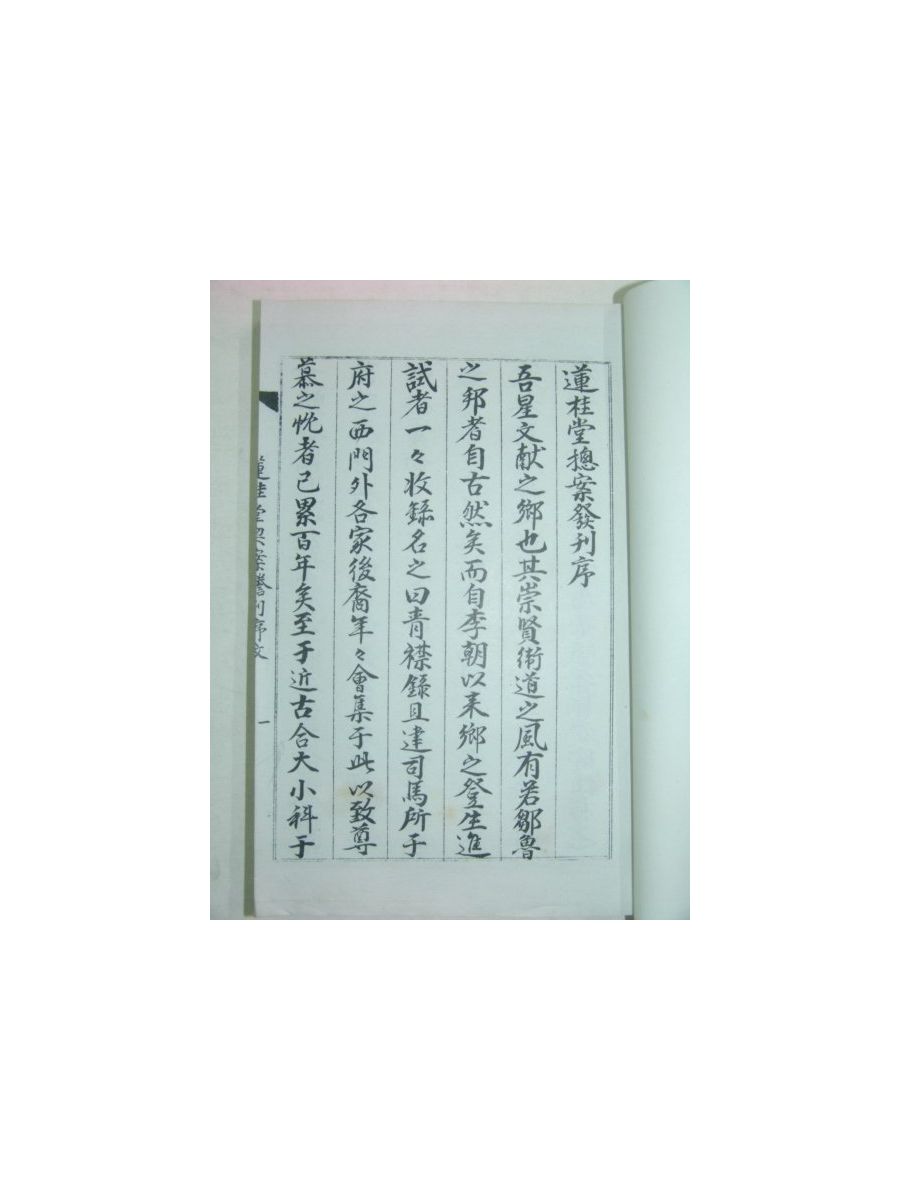 蓮桂堂摠案發刊序
吾星文献之鄉也其崇賢衛道之風有若鄒魯
之邦者自古然矣而自李朝以来鄉之登生進
試者一々收錄名之曰青襟錄且建司馬所于
府之西門外各家後裔年々會集于此以致尊
慕之忱者已累百年矣至于近古合大小科于
蓮桂堂契案發刊序文
一